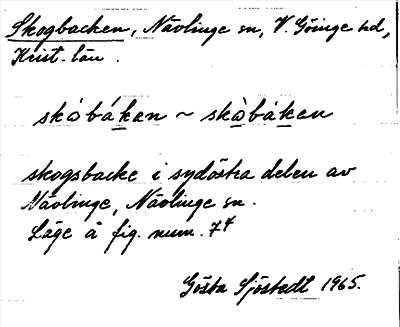 Skogbacken, Nävlinge sn, V. Göinge hd,
Krist. län.
skòbáken ~ skòbáken
skogsbacke i sydöstra delen av
Nävlinge, Nävlinge sn.
Läge å fig. num. 74
Gösta Sjöstedt 1965.